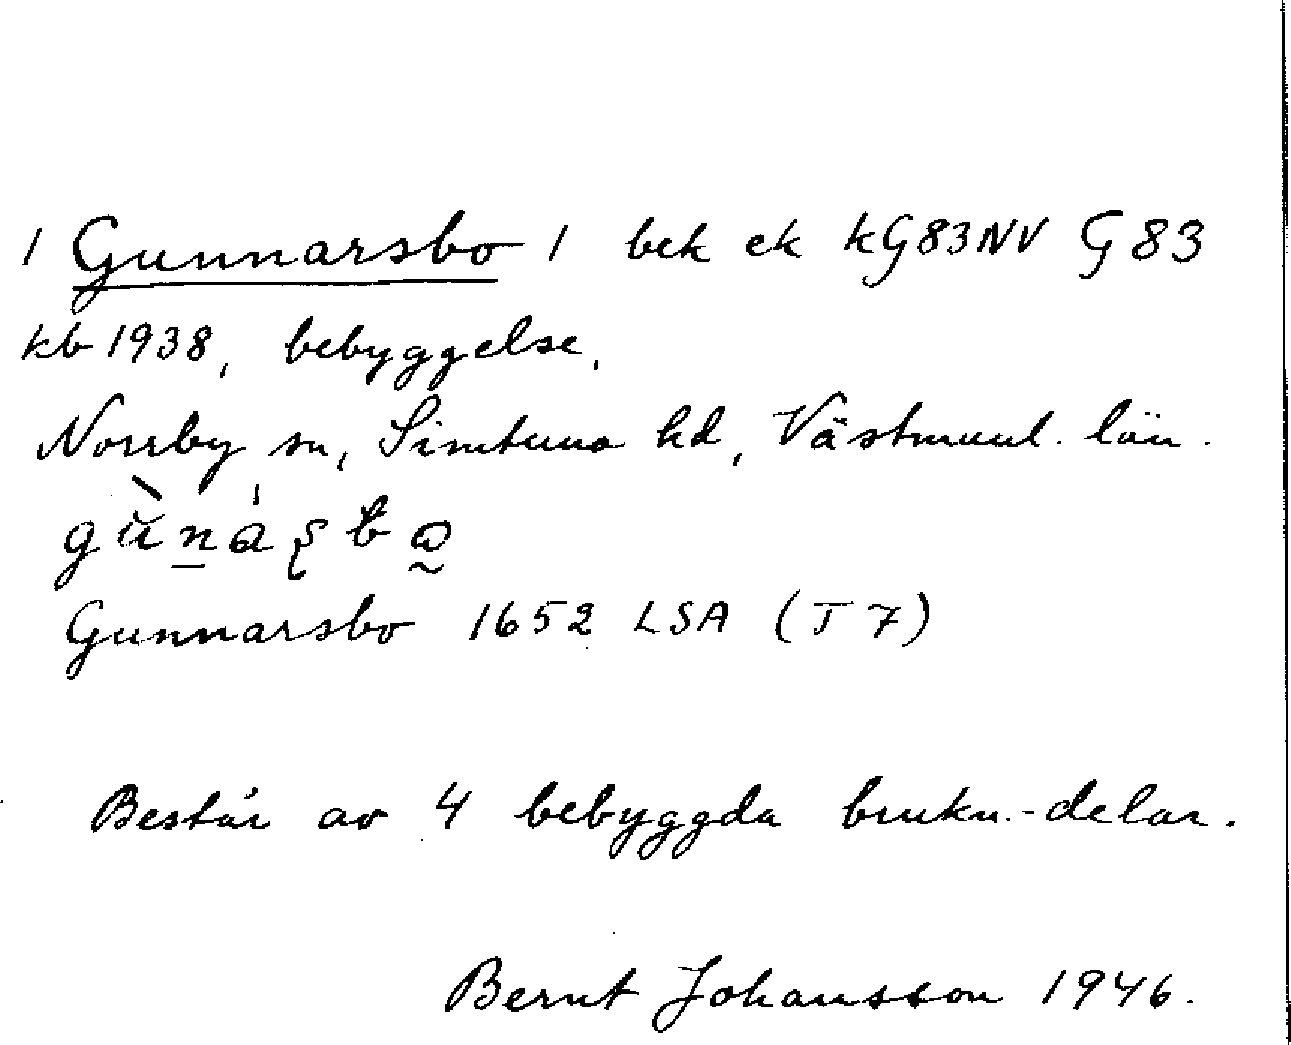 / Gunnarsbo / bek ek kG83NV G 83
kb 1938, bebyggelse,
Norrby sn, Simtuna hd, Västmanl. län.
Gunnarsbo 1652 LSA (J 7)
Består av 4 bebyggda brukn.-delar.
Bernt Johansson 1946.